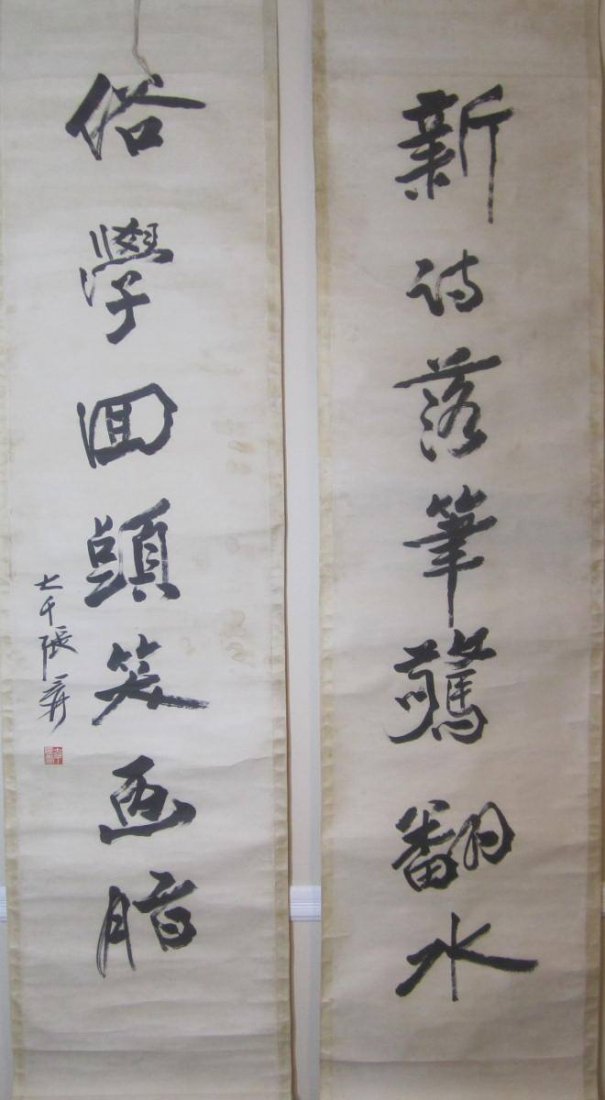 新詩落筆驚翻水
俗學回頭笑画脂
大千張爰